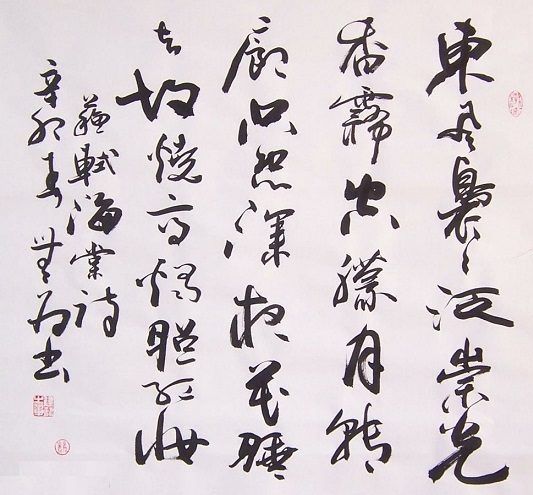 東風裊〻泛崇光
香霧空朦月轉
廊只恐深夜花睡
去故燒高燭照紅妝
蘇軾海棠詩
辛卯春無為書